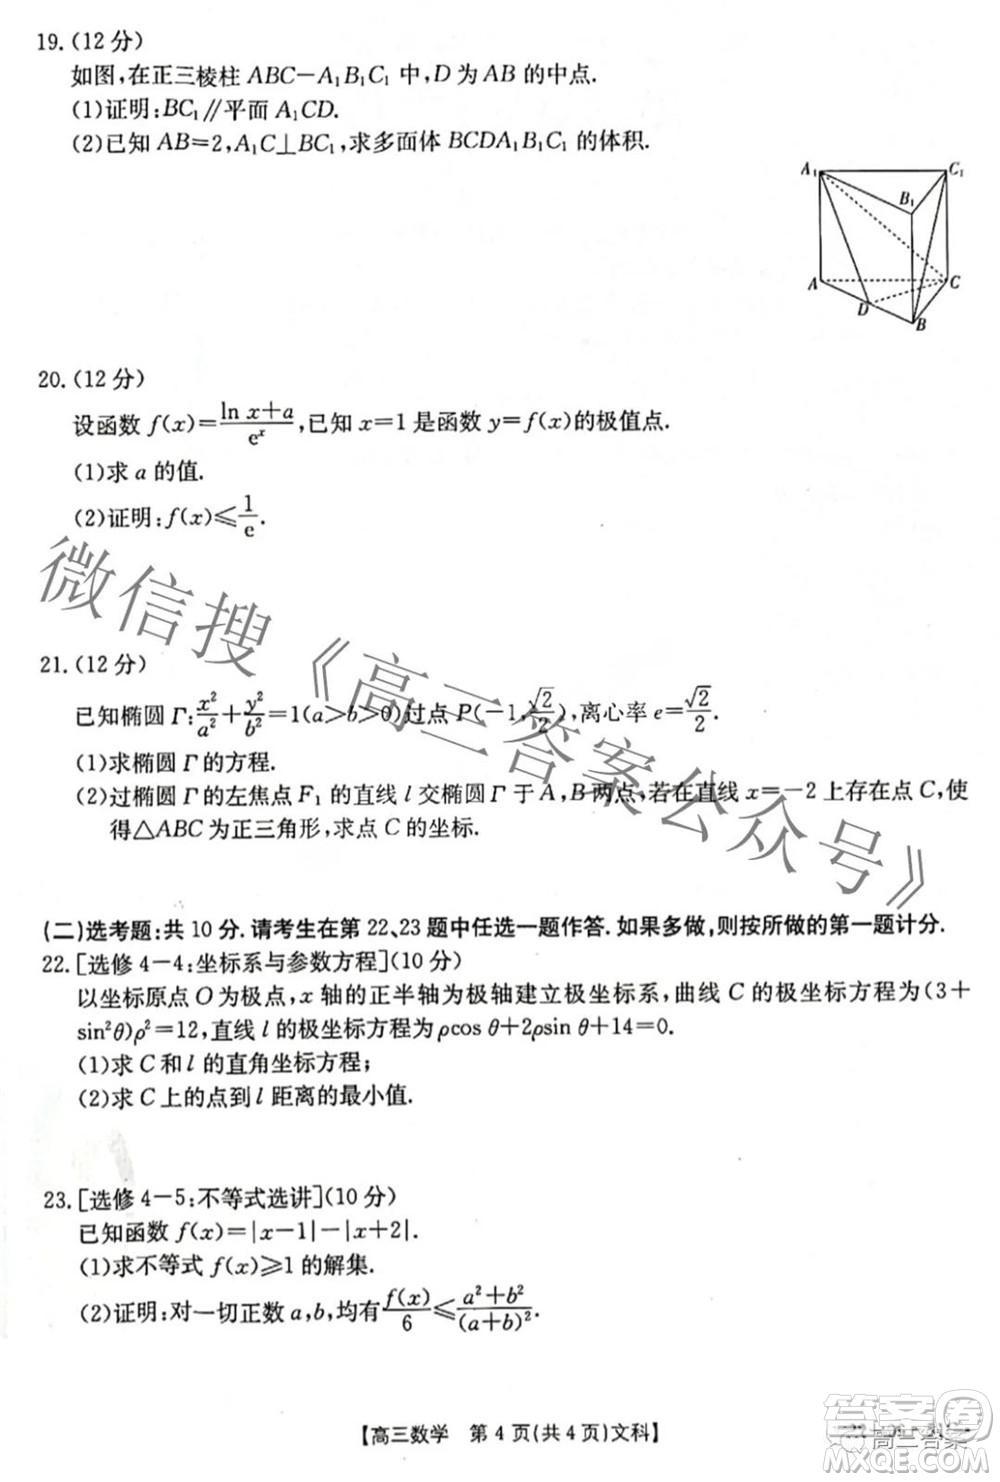 19.(12 分)
如图,在正三棱柱 ABC-A₁B₁C₁ 中,D 为 AB 的中点.
(1)证明:BC₁∥平面 A₁CD.
(2)已知 AB=2,A₁C⊥BC₁,求多面体 BCDA₁B₁C₁ 的体积.
A₁ C₁
B₁
A C
D
B
20.(12 分)
设函数 f(x)=(ln x+a)/eˣ,已知 x=1 是函数 y=f(x)的极值点.
(1)求 a 的值.
(2)证明:f(x)≤1/e.
微信搜《高三答案公众号》
21.(12 分)
已知椭圆 Γ:x²/a²+y²/b²=1(a>b>0)过点 P(-1,√2/2),离心率 e=√2/2.
(1)求椭圆 Γ 的方程.
(2)过椭圆 Γ 的左焦点 F₁ 的直线 l 交椭圆 Γ 于 A,B 两点,若在直线 x=-2 上存在点 C,使
得△ABC 为正三角形,求点 C 的坐标.
(二)选考题:共 10 分.请考生在第 22、23 题中任选一题作答.如果多做,则按所做的第一题计分.
22.[选修 4-4:坐标系与参数方程](10 分)
以坐标原点 O 为极点,x 轴的正半轴为极轴建立极坐标系,曲线 C 的极坐标方程为(3+
sin²θ)ρ²=12,直线 l 的极坐标方程为 ρcos θ+2ρsin θ+14=0.
(1)求 C 和 l 的直角坐标方程;
(2)求 C 上的点到 l 距离的最小值.
23.[选修 4-5:不等式选讲](10 分)
已知函数 f(x)=|x-1|-|x+2|.
(1)求不等式 f(x)≥1 的解集.
(2)证明:对一切正数 a,b,均有 f(x)/6≤(a²+b²)/(a+b)².
【高三数学 第 4 页(共 4 页)文科】
高三答案
答案圈
MXQE.COM